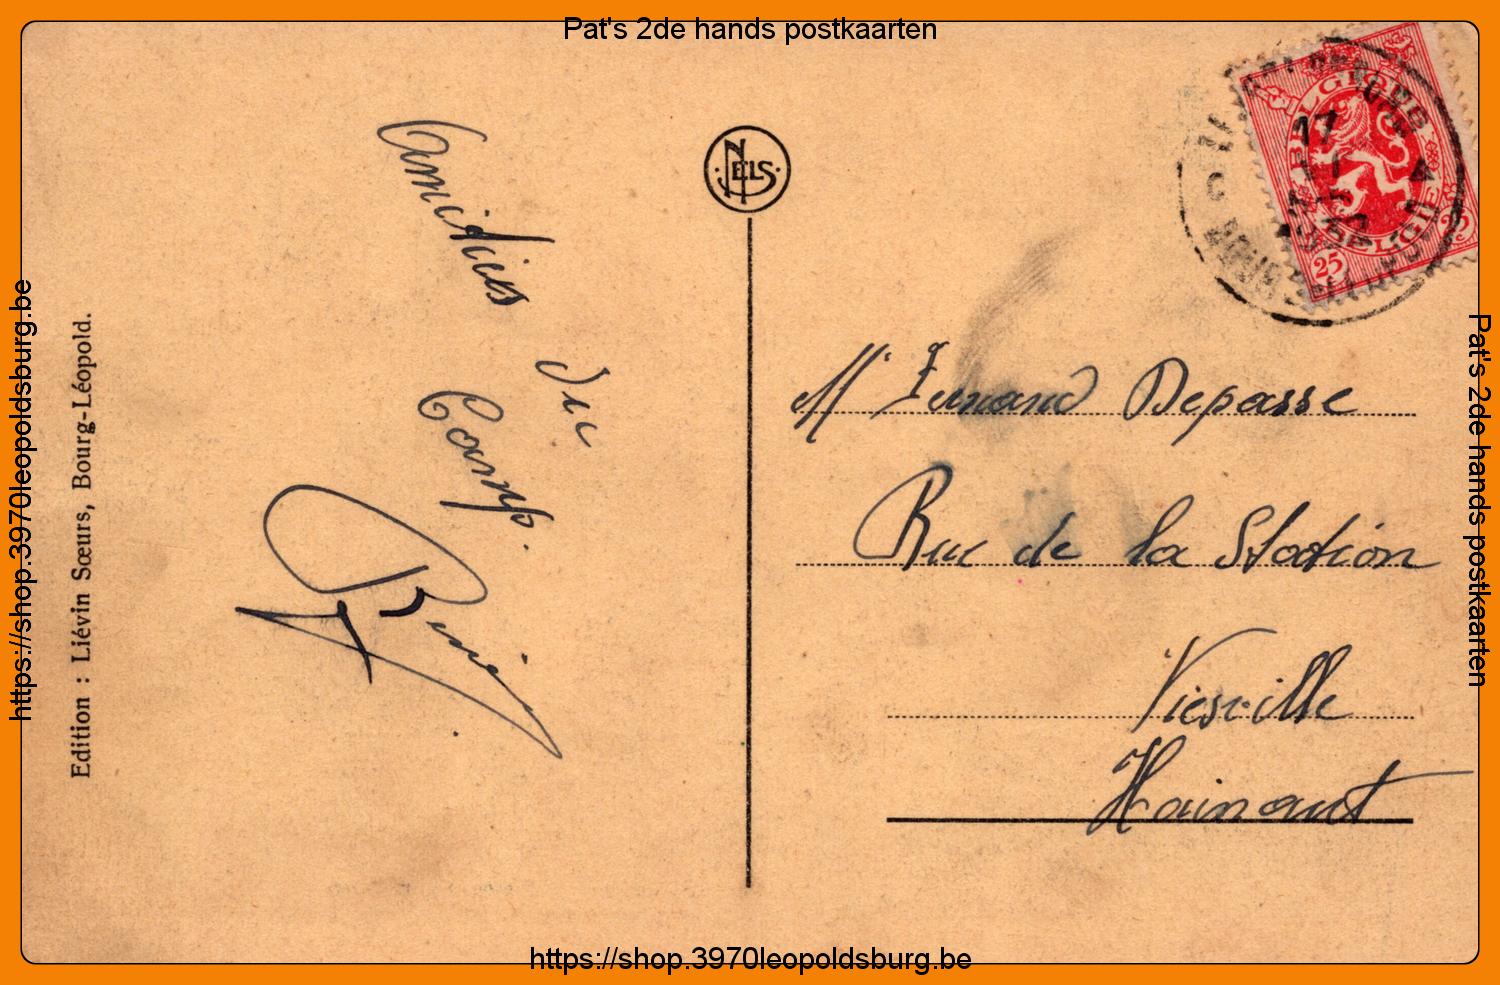 Pat's 2de hands postkaarten
https://shop.3970leopoldsburg.be
Edition : Liévin Sœurs, Bourg-Léopold.
Amitiés
du
Camp.
NELS
BELGIQUE
BELGIE
25 25
17
Mr Fernand Depasse
Rue de la Station
Viesville
Hainaut
Pat's 2de hands postkaarten
https://shop.3970leopoldsburg.be